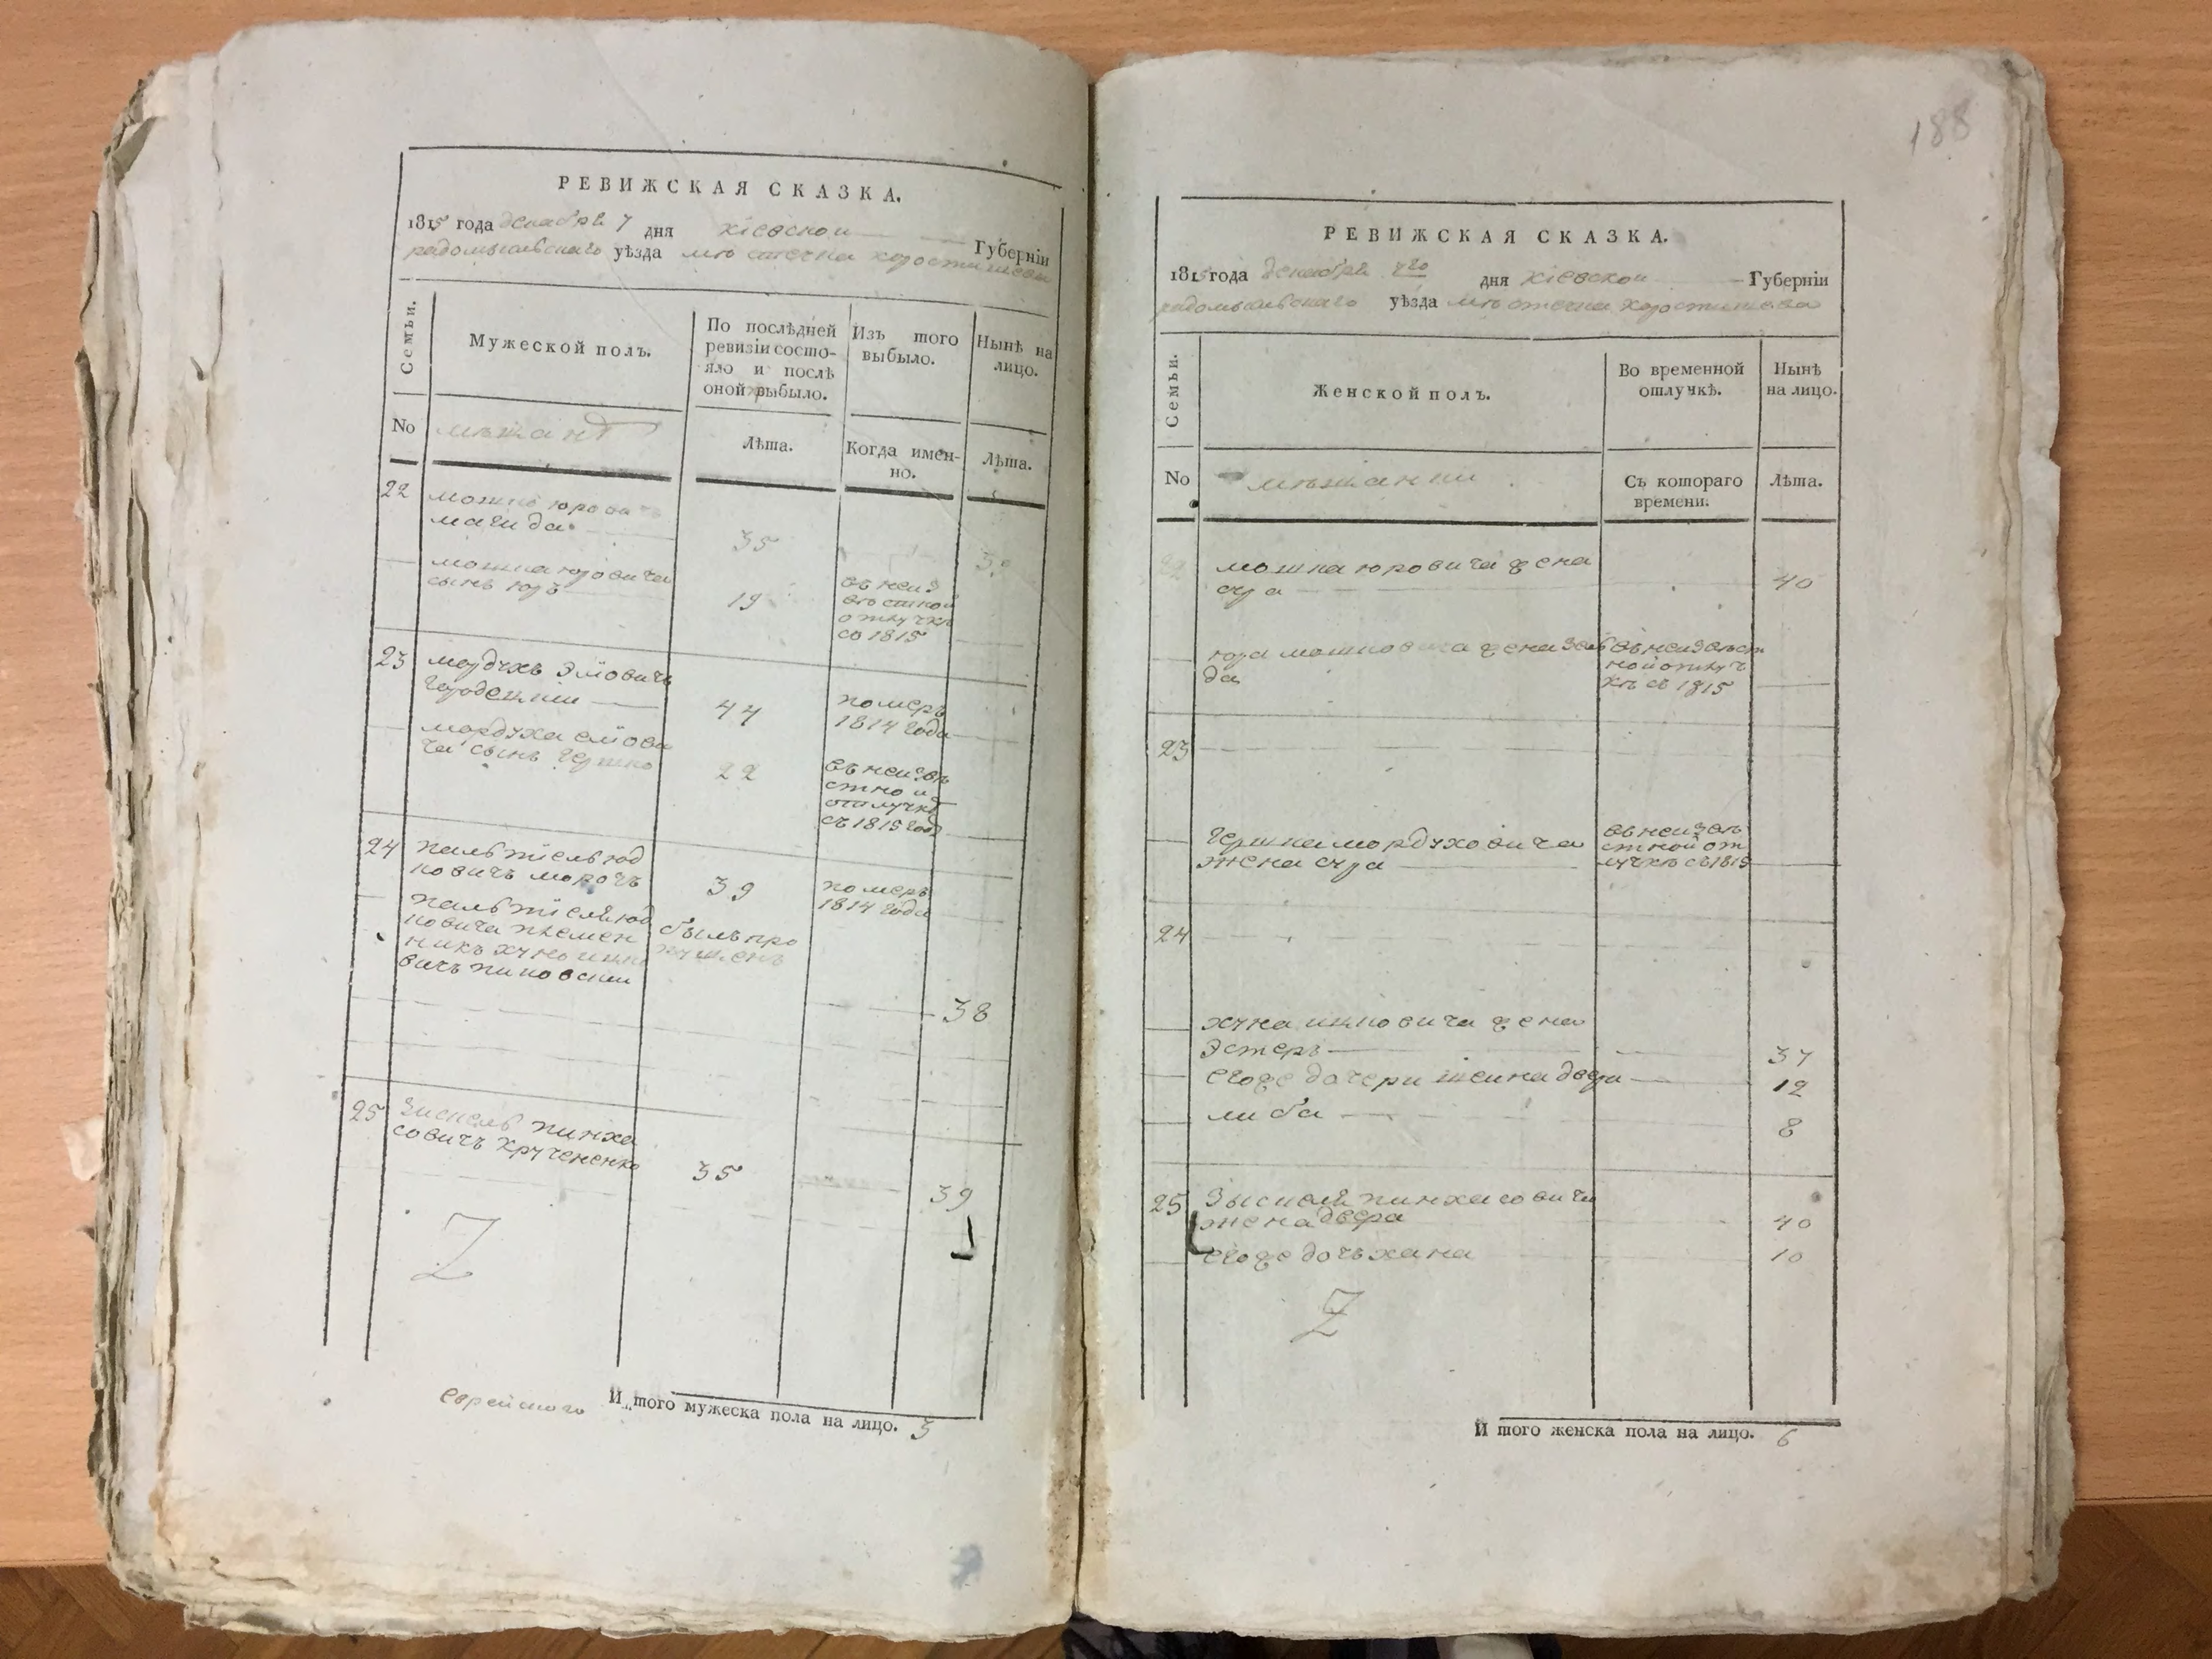 РЕВИЖСКАЯ СКАЗКА.
1815 года декабря 7 дня кіевской Губерніи
радомысльскаго уѣзда мѣстечка коростишева
Семьи.
Мужеской полъ.
По послѣдней
ревизіи состо-
яло и послѣ
оной выбыло.
Изъ того
выбыло.
Нынѣ на
лицо.
No
мѣщанѣ
Лѣта.
Когда имен-
но.
Лѣта.
22 мошко юровичъ
магида
35
мошка юровича
сынъ юръ
19
въ неиз
вѣстной
отлучкѣ
со 1815
23 мордухъ
44
померъ
1814 года
мордуха
ча сынъ гершко
22
въ неизвѣ
стной
отлучкѣ
съ 1815 года
24
новичъ
39
померъ
1814 года
племен
никъ хуно
вичъ
былъ про
пущенъ
38
25 зисель пинха
совичъ кручененко
35
39
еврейского И того мужеска пола на лицо. 3
188
РЕВИЖСКАЯ СКАЗКА.
1815 года декабря 7го дня кіевской Губерніи
радомысльскаго уѣзда мѣстечка коростишева
Семьи.
Женской полъ.
Во временной
отлучкѣ.
Нынѣ
на лицо.
No
мѣщанки
Съ котораго
времени.
Лѣта.
22 мошка юровича жена
сура
40
юра мошковича жена
да
въ неизвѣст
ной отлуч
кѣ съ 1815
23
гершка мордуховича
жена сура
въ неизвѣ
стной от
лучкѣ съ 1815
24
хуна ицковича жена
эстеръ
37
егоже дочери шейна двора
12
либа
8
25 зыселя пинхасовича
жена двера
40
егоже дочь хана
10
И того женска пола на лицо. 6